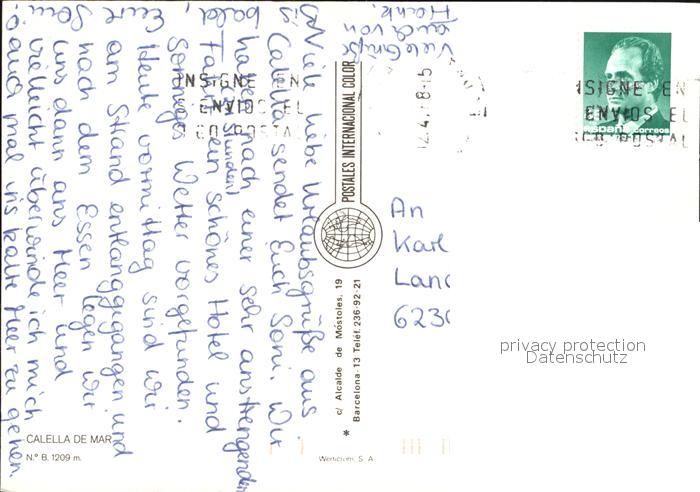 Viele liebe Urlaubsgrüße aus
Calella sendet Euch Soni. Wir
haben nach einer sehr anstrengenden
Fahrt (Stunden) ein schönes Hotel und
Sonniges Wetter vorgefunden.
Heute vormittag sind wir
am Strand entlanggegangen und
nach dem Essen legen wir
uns dann ans Meer und
vielleicht überwinde ich mich
auch mal ins kalte Meer zu gehen.
bald,
Eure
Soni
Viele Grüße
auch von
Frank.
POSTALES INTERNACIONAL COLOR
c/ Alcalde de Móstoles, 19
Barcelona-13 Teléf. 236-92-21
CALELLA DE MAR
N.º B. 1209 m.
An
Karl
Lan
623
España correos
NSIGNE EN
ENVIOS EL
CO POSTAL
12.4.
8-15
NSIGNE EN
ENVIOS EL
CO POSTAL
privacy protection
Datenschutz